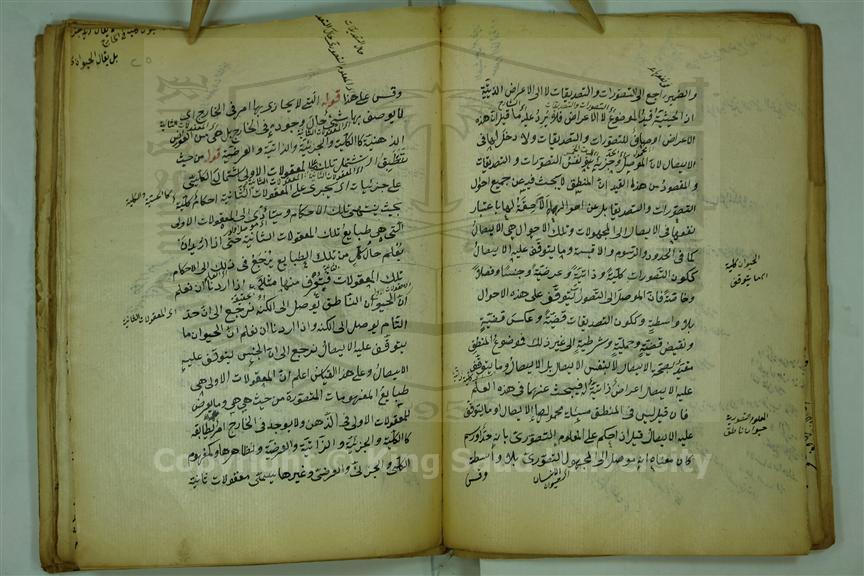 والضمير راجع الى التصورات والتصديقات لا الى الاعراض الذاتية
اذ الحيثية قيد الموضوع لا الاعراض فلا يرد على ما قيل ان هذه
الاعراض اوصاف للتصورات والتصديقات ولا دخل لها في
الايصال لان الموصل نفس التصورات والتصديقات
والمقصود من هذا القيد ان المنطقي لا يبحث فيه عن جميع احوال
التصورات والتصديقات بل عن احوالهما اللاحقة لها باعتبار
نفعها في الايصال الى المجهولات وتلك الاحوال هي الايصال
كما في الحدود والرسوم والاقيسة وما يتوقف عليه الايصال
ككون التصورات كلية وذاتية وعرضية وجنسا وفصلا
وخاصة فان الموصل الى التصور يتوقف على هذه الاحوال
بلا واسطة وككون التصديقات قضية وعكس قضية
ونقيض قضية وحملية وشرطية الى غير ذلك فموضوع المنطق
مقيد بصحة الايصال لا بنفس الايصال بل الايصال وما يتوقف
عليه الايصال اعراض ذاتية يبحث عنها في هذا العلم
فان قيل ليس في المنطق مسئلة محمولها الايصال او ما يتوقف
عليه الايصال قيل ان الحكم على المعلوم التصوري بانه حد او رسم
كان معناه انه موصل الى المجهول التصوري بلا واسطة
وقس
الحيوان كلية
انما يتوقف
المعلوم التصورية
حيوان ناطق
وقس على هذا قوله التي لا يحاذي بها امر في الخارج اي
لا يوصف بها شيء حال وجوده في الخارج بل هي من العوارض
الذهنية كالكلية والجزئية والذاتية والعرضية قوله من حيث
تنطبق اي تشتمل تلك المعقولات الاولى اشتمال الكلي
على جزئيات اي يجري على المعقولات الثانية احكام كلية
بحيث ينتهي تلك الاحكام ويتأدى الى المعقولات الاولى
التي هي طبايع تلك المعقولات الثانية حتى اذا اريد ان
يعلم حال كل من تلك الطبايع يرجع في ذلك الى الاحكام
تلك المعقولات فيتعرف منها مثلا اذا اردنا ان نعلم
ان الحيوان الناطق يوصل الى الكنه نرجع الى ان حد
التام يوصل الى الكنه واذا اردنا ان نعلم ان الحيوان ما
يتوقف عليه الايصال نرجع الى ان الجنس يتوقف عليه
الايصال وعلى هذا القياس اعلم ان المعقولات الاولى هي
طبايع المفهومات المتصورة من حيث هي هي وما يعرض
للمعقولات الاولى في الذهن ولا يوجد في الخارج امر يطابقه
كالكلية والجزئية والذاتية والعرضية ونظائرها وكمفهوم
الكلي والجزئي والعرضي وغيرها يسمى معقولات ثانية
بل يقال الحيوان
اي المعقولات الثانية
Copyright © King Saud University
1957